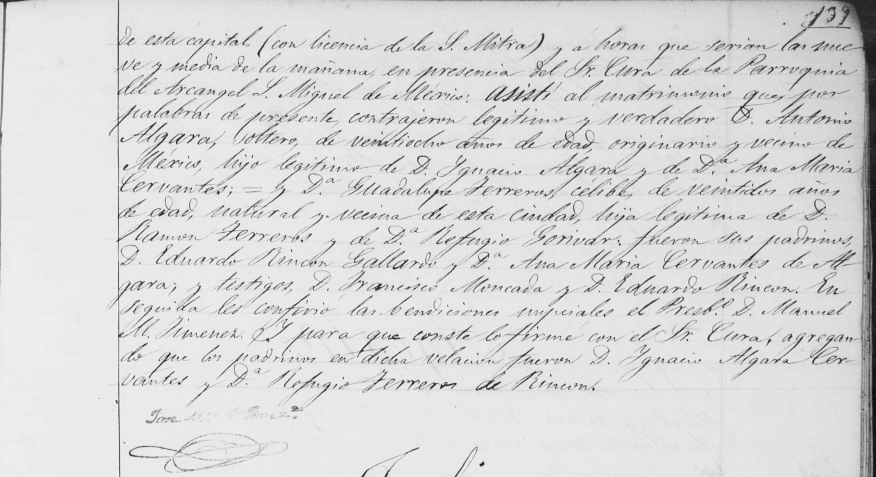 139
de esta capital, (con licencia de la S. Mitra) y a horas que serian las nue-
ve y media de la mañana, en presencia del Sr. Cura de la Parroquia
del Arcangel S. Miguel de México: asistí al matrimonio que, por
palabras de presente, contrajeron legítimo y verdadero D. Antonio
Algara, soltero, de veintiocho años de edad, originario y vecino de
México, hijo legítimo de D. Ignacio Algara y de D.ª Ana Maria
Cervantes; = y D.ª Guadalupe Terreros, célibe, de veintidos años
de edad, natural y vecina de esta ciudad, hija legítima de D.
Ramon Terreros y de D.ª Refugio Gorivar: fueron sus padrinos,
D. Eduardo Rincon Gallardo y D.ª Ana Maria Cervantes de Al-
gara; y testigos, D. Francisco Moncada y D. Eduardo Rincon. En
seguida les confirió las bendiciones nupciales el Presb.º D. Manuel
M. Jimenez. Y para que conste lo firmé con el Sr. Cura, agregan-
do que los padrinos en dicha velación fueron D. Ignacio Algara Cer-
vantes y D.ª Refugio Terreros de Rincon.
Jose